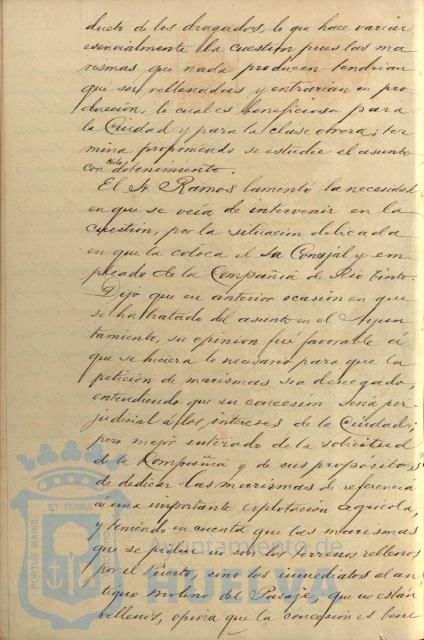 ducto de los dragados, lo que hace variar
esencialmente la cuestión pues las ma
rismas que nada producen tendrian
que ser rellenadas y entrarian en pro
ducción, lo cual es beneficioso para
la Ciudad y para la clase obrera; ter
mina proponiendo se estudie el asunto
con detenimiento.
El Sr. Ramos lamentó la necesidad
en que se veía de intervenir en la
cuestión, por la situación delicada
en que la coloca el ser Concejal y em
pleado de la Compañia de Rio Tinto:
Dijo que en anterior ocasion en que
se ha tratado del asunto en el Ayun
tamiento, su opinion fué favorable á
que se hiciera lo necesario para que la
petición de marismas sea denegada,
entendiendo que su concesion seria per
judicial á los intereses de la Ciudad;
pero mejor enterado de la solicitud
de la Compañia y de sus propositos
de dedicar las marismas de referencia
á una importante explotacion agricola,
y teniendo en cuenta que las marismas
que se piden no son los terrenos rellenos
por el Puerto, sino los inmediatos al an
tiguo molino del Pasaje, que no están
rellenos, opina que la concesión es bene
PORTUS MARIS ET TERRAE
Ayuntamiento de
HUELVA